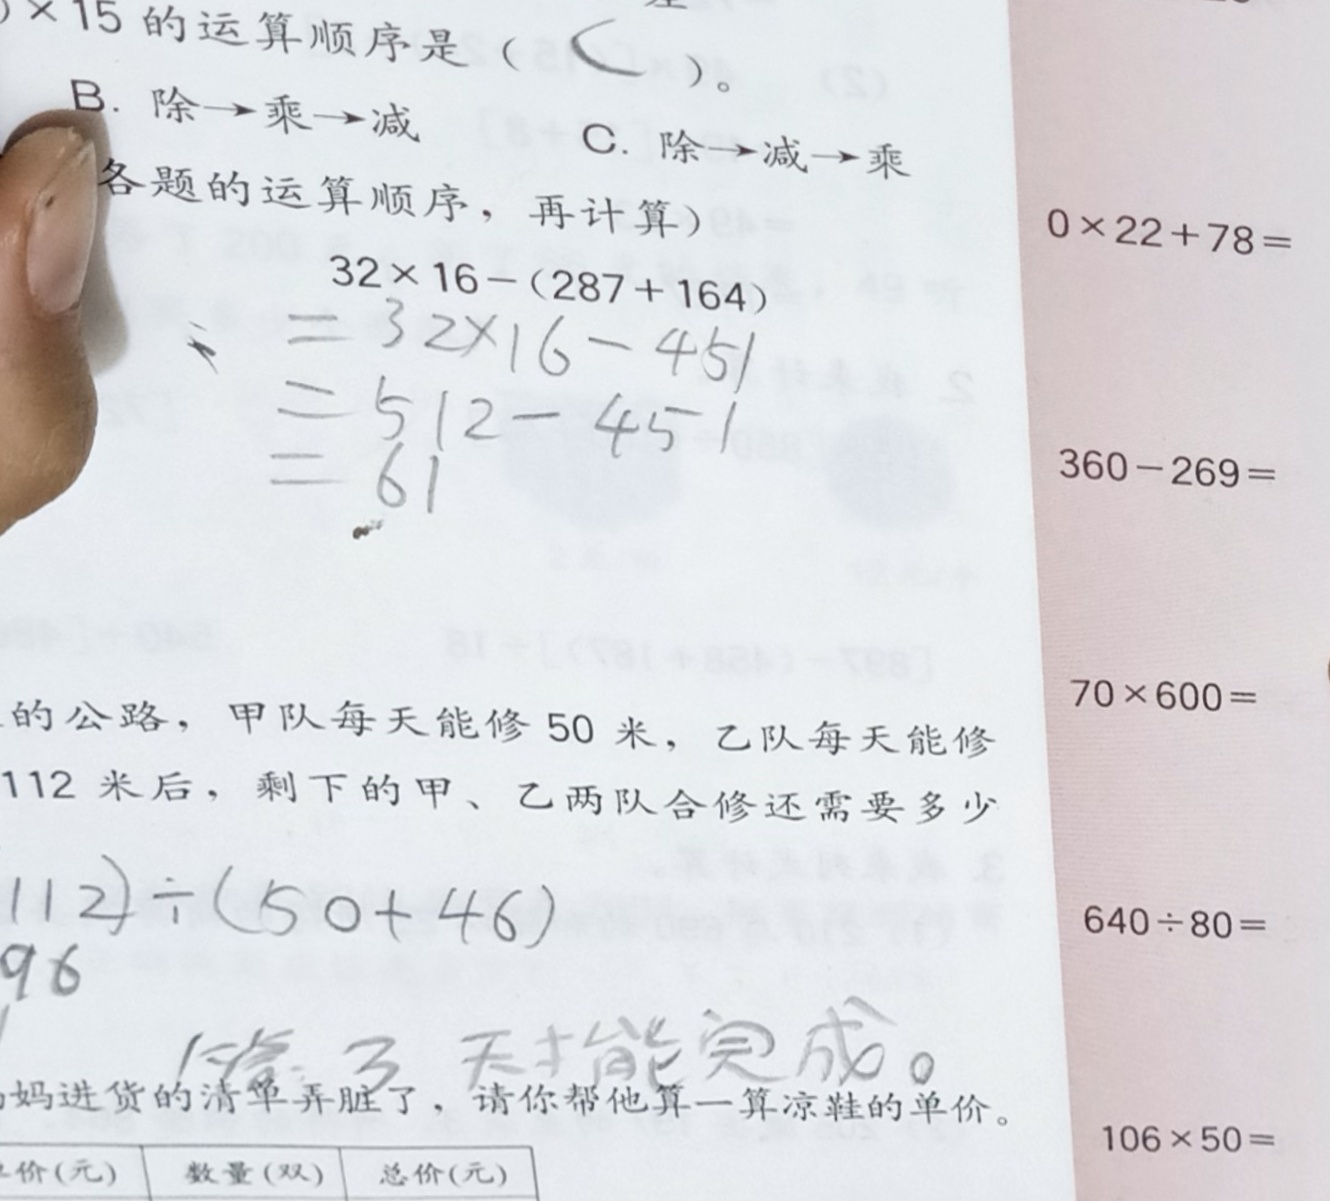 )×15的运算顺序是( C )。
B. 除→乘→减 C. 除→减→乘
各题的运算顺序，再计算)
32×16-(287+164)
=32×16-451
=512-451
=61
的公路，甲队每天能修50米，乙队每天能修
112米后，剩下的甲、乙两队合修还需要多少
112)÷(50+46)
96
答:3天才能完成。
妈进货的清单弄脏了，请你帮他算一算凉鞋的单价。
价(元) 数量(双) 总价(元)
0×22+78=
360-269=
70×600=
640÷80=
106×50=